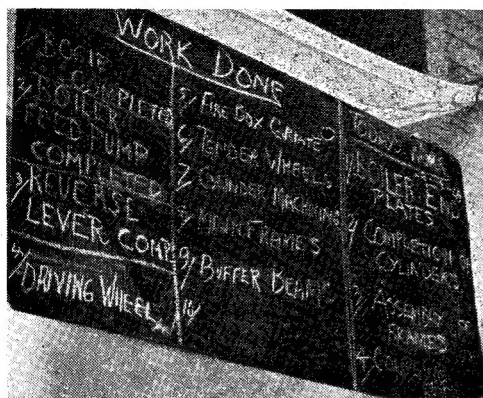 WORK DONE
1/ BOGIE
COMPLETED
2/ BOILER
FEED PUMP
COMPLETED
3/ REVERSE
LEVER COMP
4/ DRIVING WHEEL
5/ FIRE BOX GRATE
6/ TENDER WHEELS
7/ CYLINDER MACHINING
8/ MAIN FRAMES
9/ BUFFER BEAMS
10/
1/ BOILER END
PLATES
2/ COMPLETION OF
CYLINDERS
3/ ASSEMBLY OF
FRAMES
4